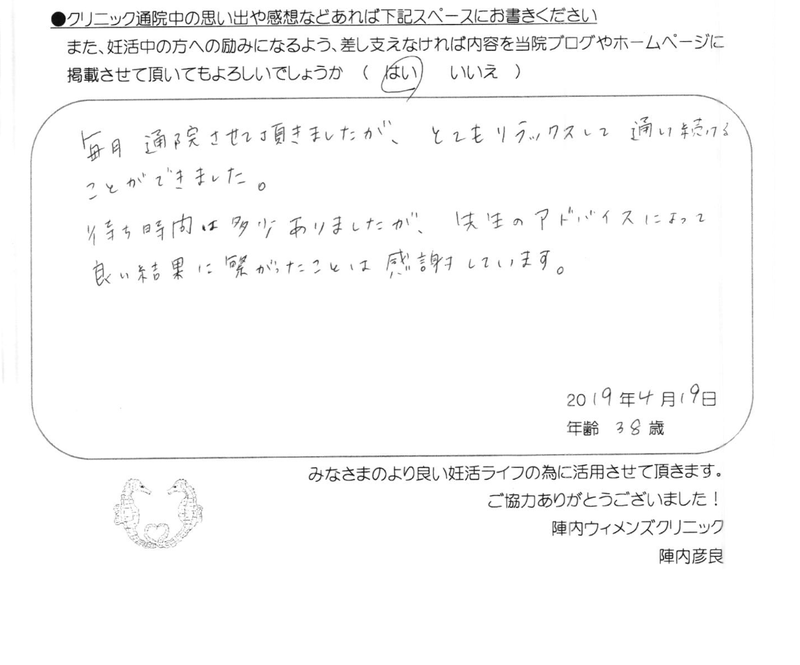 ●クリニック通院中の思い出や感想などあれば下記スペースにお書きください
また、妊活中の方への励みになるよう、差し支えなければ内容を当院ブログやホームページに
掲載させて頂いてもよろしいでしょうか （ はい いいえ ）
毎月 通院させて頂きましたが、 とてもリラックスして 通い続ける
ことができました。
待ち時間は多少ありましたが、 先生のアドバイスによって
良い結果に繋がったことは 感謝しています。
2019年4月19日
年齢 38歳
みなさまのより良い妊活ライフの為に活用させて頂きます。
ご協力ありがとうございました！
陣内ウィメンズクリニック
陣内彦良